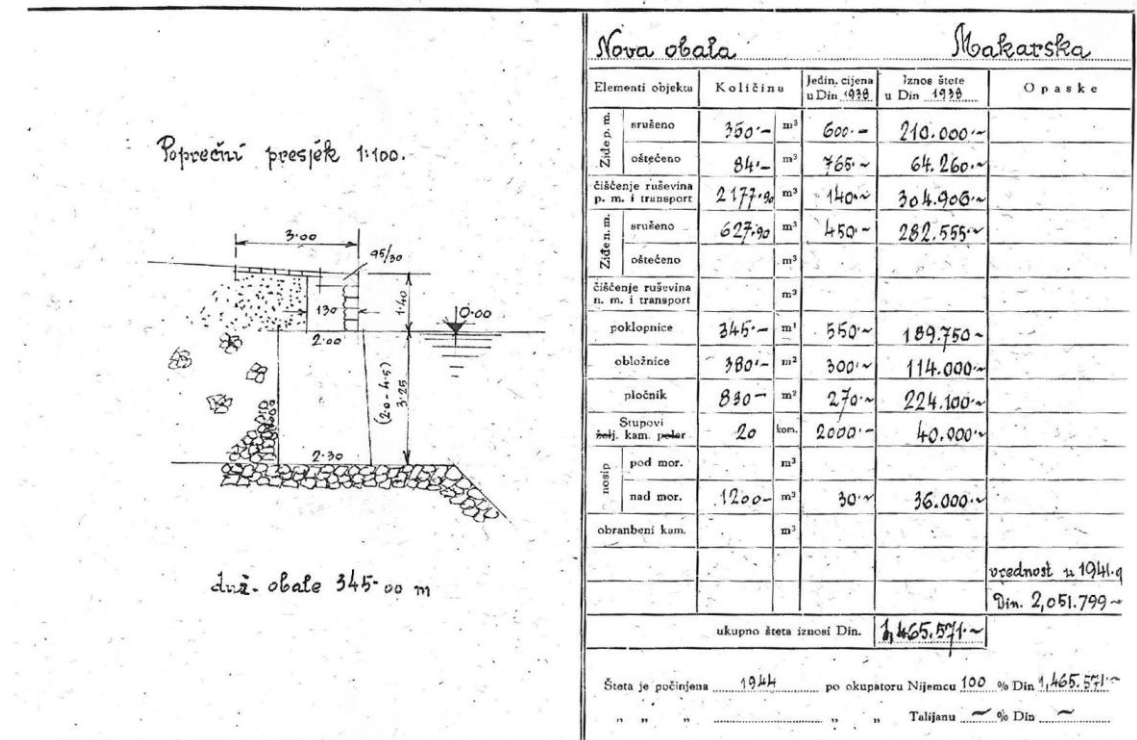 Poprečni presjek 1:100.
3.00
95/30
130
1.40
0.00
2.00
(2.0-4.5)
3.25
2.30
duž. obale 345.00 m
Nova obala Makarska
Elementi objekta Količina Jedin. cijena u Din 1938 Iznos štete u Din 1938 Opaske
Ziđe p. m. srušeno 350.- m³ 600.- 210.000.~
oštećeno 84.- m³ 765.~ 64.260.~
čišćenje ruševina p. m. i transport 2177.90 m³ 140.~ 304.906.~
Ziđe n. m. srušeno 627.90 m³ 450.~ 282.555.~
oštećeno m³
čišćenje ruševina n. m. i transport m³
poklopnice 345.- m¹ 550.~ 189.750.~
obložnice 380.- m² 300.~ 114.000.~
pločnik 830- m² 270.~ 224.100.~
Stupovi
želj. kam. poler 20 kom. 2000.- 40.000.~
nosip pod mor. m³
nad mor. 1200- m³ 30.~ 36.000.~
obranbeni kam. m³
vrednost u 1941.g
Din. 2,051.799~
ukupno šteta iznosi Din. 1,465.571.~
Šteta je počinjena 1944 po okupatoru Nijemcu 100 % Din 1,465.571.~
„ „ „ „ „ Talijanu ~ % Din ~